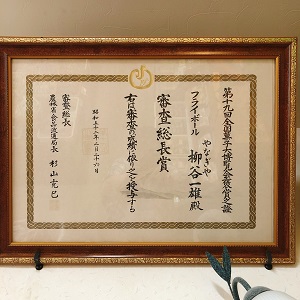 第十九回全国菓子大博覧会褒賞之證
フライボール
やなぎや
柳谷一雄殿
審査総長賞
右は審査の成績に依り之を授与する
昭和五十二年二月二十六日
審査総長
農林省食品流通局長 杉山克己